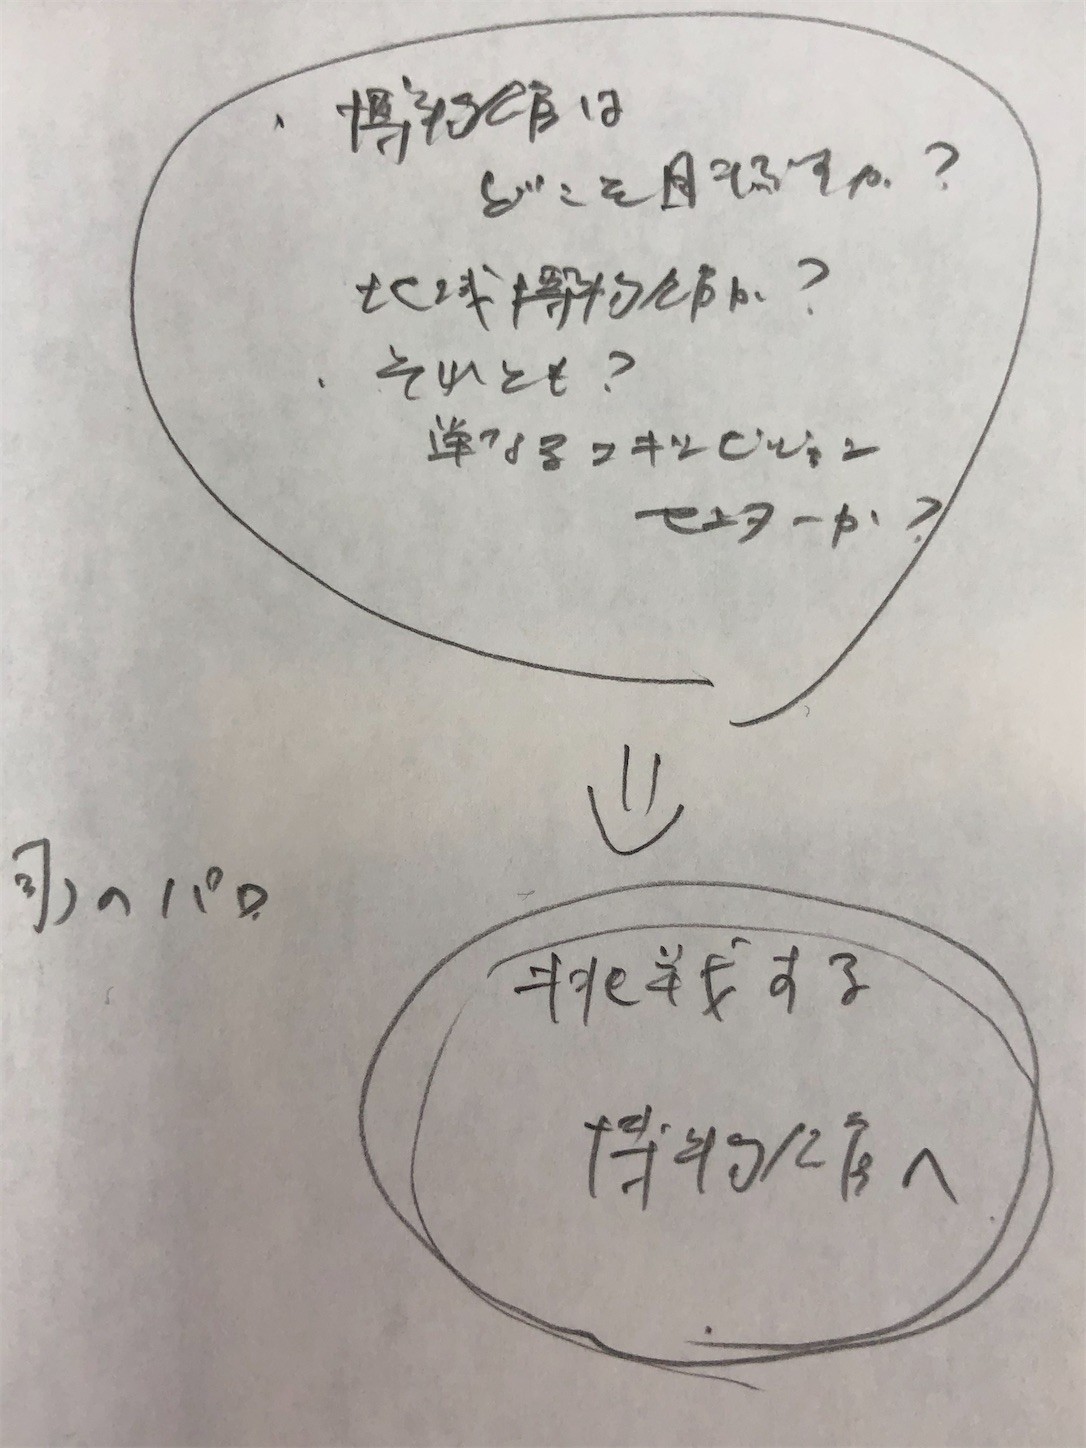 ・博物館は
どこを目指すか？
地域博物館か？
・それとも？
単なるコキビション
センターか？
⇓
のパロ
挑戦する
博物館へ